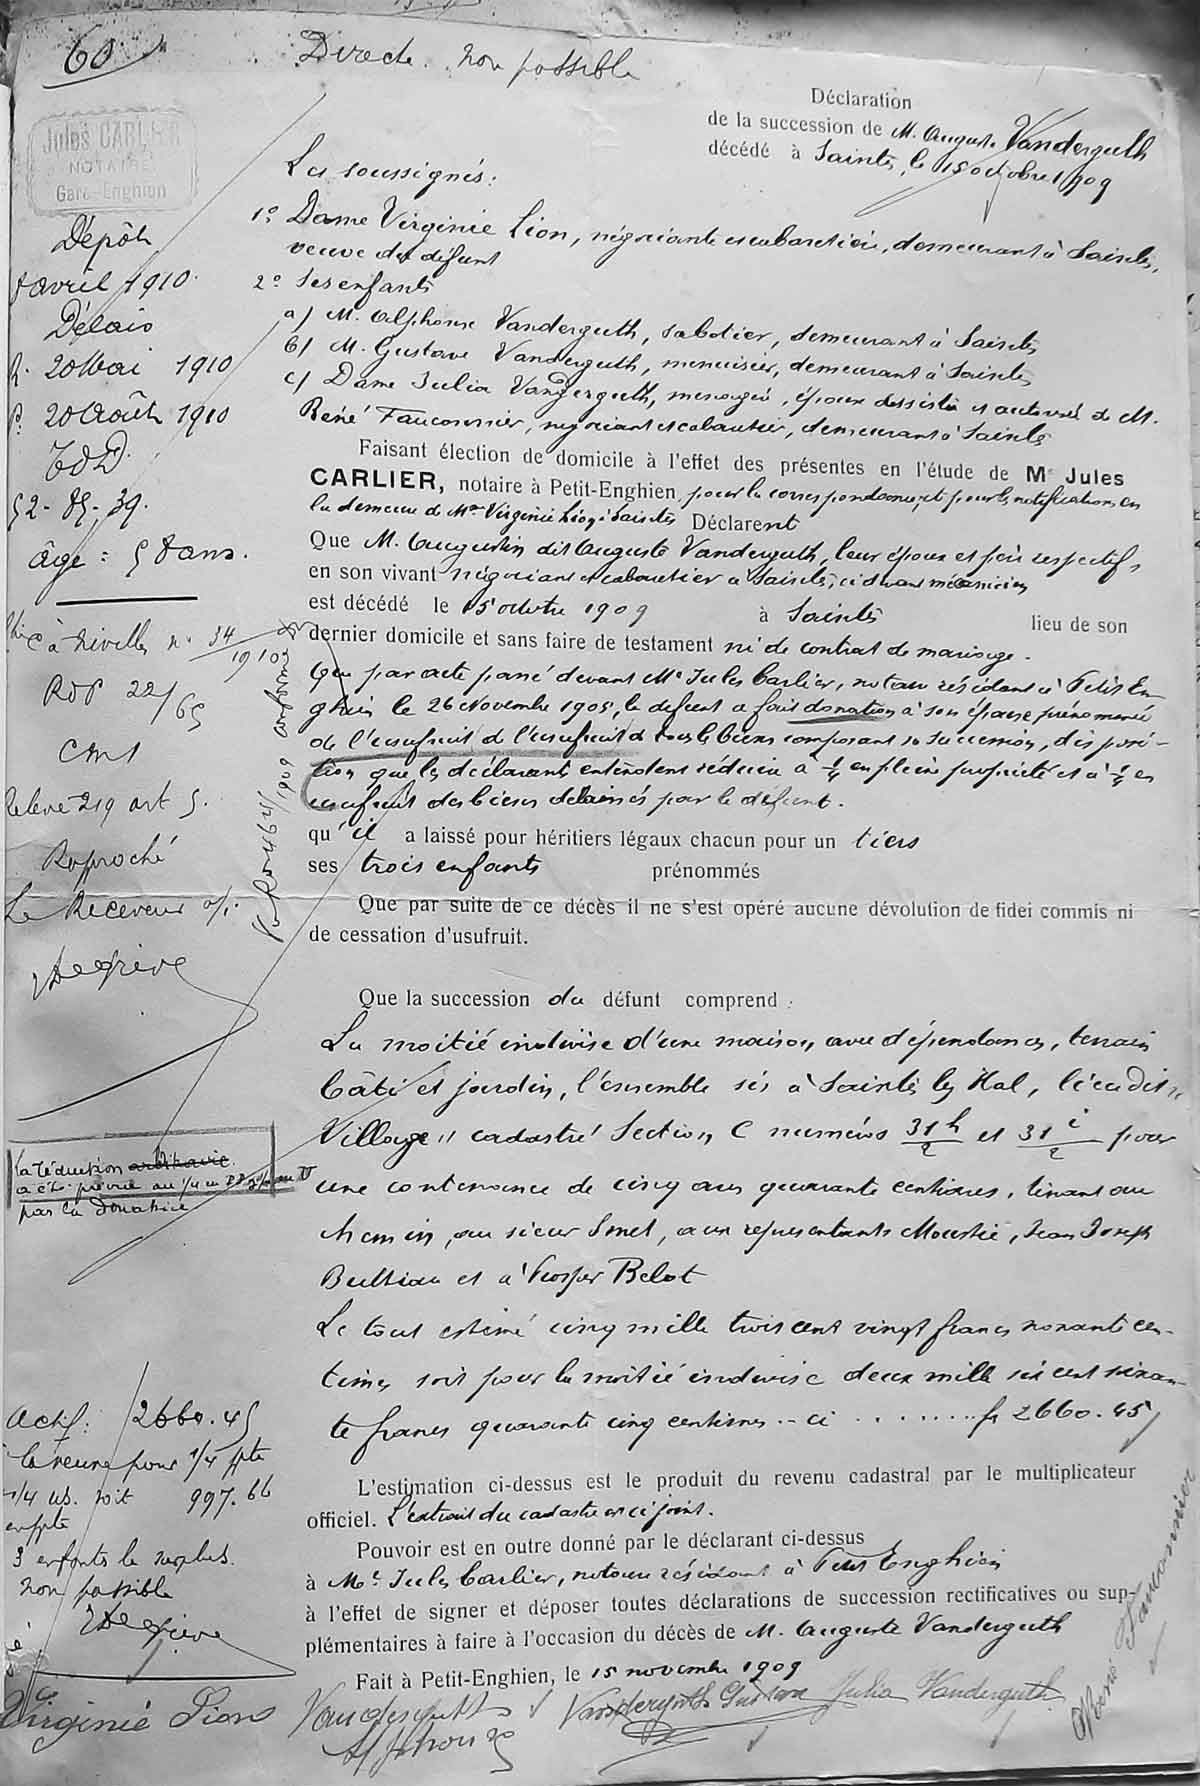 60
Directe non possible
Jules CARLIER
NOTAIRE
Gare-Enghien
Déclaration
de la succession de M. Auguste Vanderguth
décédé à Saintes, le 15 octobre 1909
Les soussignés:
1° Dame Virginie Lion, négociante et cabaretière, demeurant à Saintes,
veuve du défunt
2° Ses enfants
a) M. Alphonse Vanderguth, sabotier, demeurant à Saintes
b) M. Gustave Vanderguth, menuisier, demeurant à Saintes
c) Dame Julia Vanderguth, ménagère, épouse assistée et autorisée de M.
René Fauconnier, négociant et cabaretier, demeurant à Saintes
Faisant élection de domicile à l'effet des présentes en l'étude de Me Jules
CARLIER, notaire à Petit-Enghien, pour la correspondance, et pour les notifications en
la demeure de Mme Virginie Lion à Saintes Déclarent
Que M. Augustin dit Auguste Vanderguth, leur époux et père respectif,
en son vivant négociant et cabaretier à Saintes, ci devant mécanicien
est décédé le 15 octobre 1909 à Saintes lieu de son
dernier domicile et sans faire de testament ni de contrat de mariage.
Que par acte passé devant Me Jules Carlier, notaire résidant à Petit En-
ghien le 26 Novembre 1905, le défunt a fait donation à son épouse prénommée
de l'usufruit de l'usufruit de tous les biens composant sa succession, disposi-
tion que les déclarants entendent réduire à 1/4 en pleine propriété et à 1/4 en
usufruit des biens délaissés par le défunt.
qu'il a laissé pour héritiers légaux chacun pour un tiers
ses trois enfants prénommés
Que par suite de ce décès il ne s'est opéré aucune dévolution de fidei commis ni
de cessation d'usufruit.
Que la succession du défunt comprend :
La moitié indivise d'une maison, avec dépendances, terrain
bâti et jardin, l'ensemble sis à Saintes lez Hal, lieu dit "
Village" cadastré Section C numéros 31 h/2 et 31 i/2 pour
une contenance de cinq ares quarante centiares, tenant au
chemin, au sieur Smet, aux représentants Moustie, Jean Joseph
Bultiau et à Prosper Belot
Le tout estimé cinq mille trois cent vingt francs nonante cen-
times soit pour la moitié indivise deux mille six cent soixan-
te francs quarante cinq centimes .. ci ........ fr 2660.45
L'estimation ci-dessus est le produit du revenu cadastral par le multiplicateur
officiel. L'extrait du cadastre est ci joint.
Pouvoir est en outre donné par le déclarant ci-dessus
à Me Jules Carlier, notaire résidant à Petit Enghien
à l'effet de signer et déposer toutes déclarations de succession rectificatives ou sup-
plémentaires à faire à l'occasion du décès de M. Auguste Vanderguth
Fait à Petit-Enghien, le 15 novembre 1909
Virginie Lion
Vanderguth Alphonse
Vanderguth Gustave
Julia Vanderguth
René Fauconnier
Dépôt
avril 1910.
Délais
R. 20 Mai 1910
P. 20 Août 1910
52-85-39.
âge : 58 ans.
à Nivelles n° 34/1910
RDP 22/65
Relevé 219 art 5.
Raproché
Le Receveur a/i
la réduction arbitraire
a été prévue au
par la donatrice
Actif: 2660.45
la veuve pour 1/4 ppte
1/4 us. soit 997.66
en ppte
3 enfants le surplus.
non passible